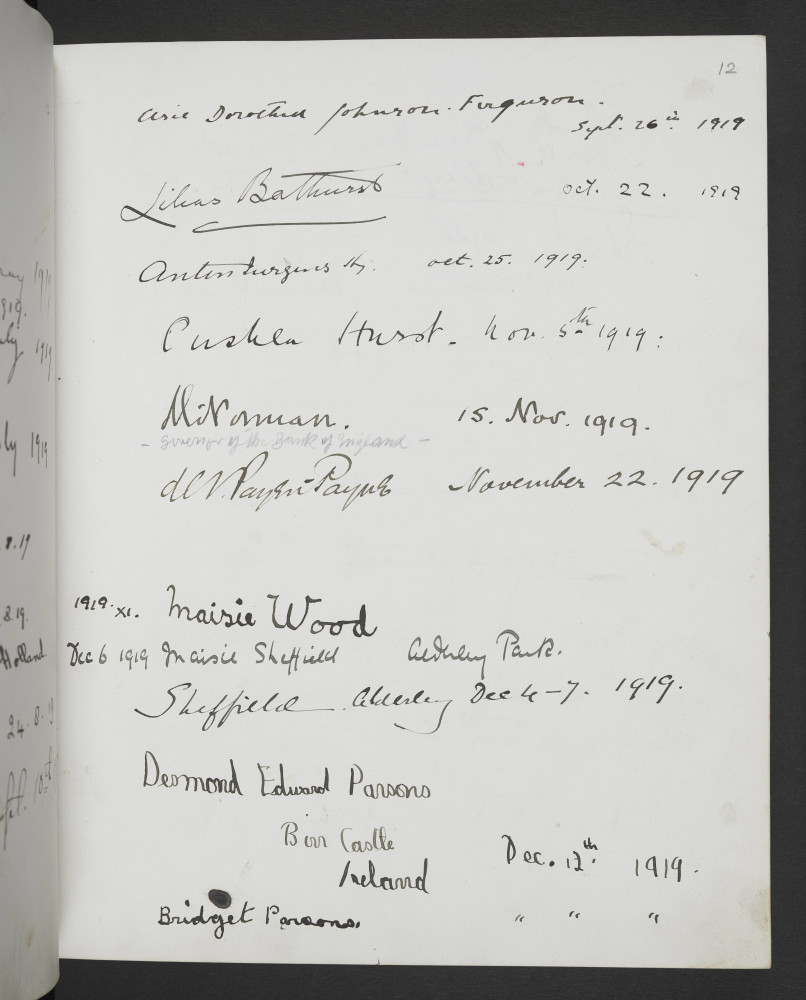 12
Dorothea Johnson-Ferguson.
Sept. 26th 1919
Lilias Bathurst Oct. 22. 1919
Oct. 25. 1919.
Cushla Hurst. Nov. 5th 1919.
MNorman. 15. Nov. 1919.
- Governor of the Bank of England -
Payen-Payne November 22. 1919
1919. XI. Maisie Wood
Dec 6 1919 Maisie Sheffield Alderley Park.
Sheffield. Alderley Dec 4-7. 1919.
Desmond Edward Parsons
Birr Castle
Ireland
Dec. 12th. 1919.
Bridget Parsons. " " "
1919
8.19
Holland
24.8.19